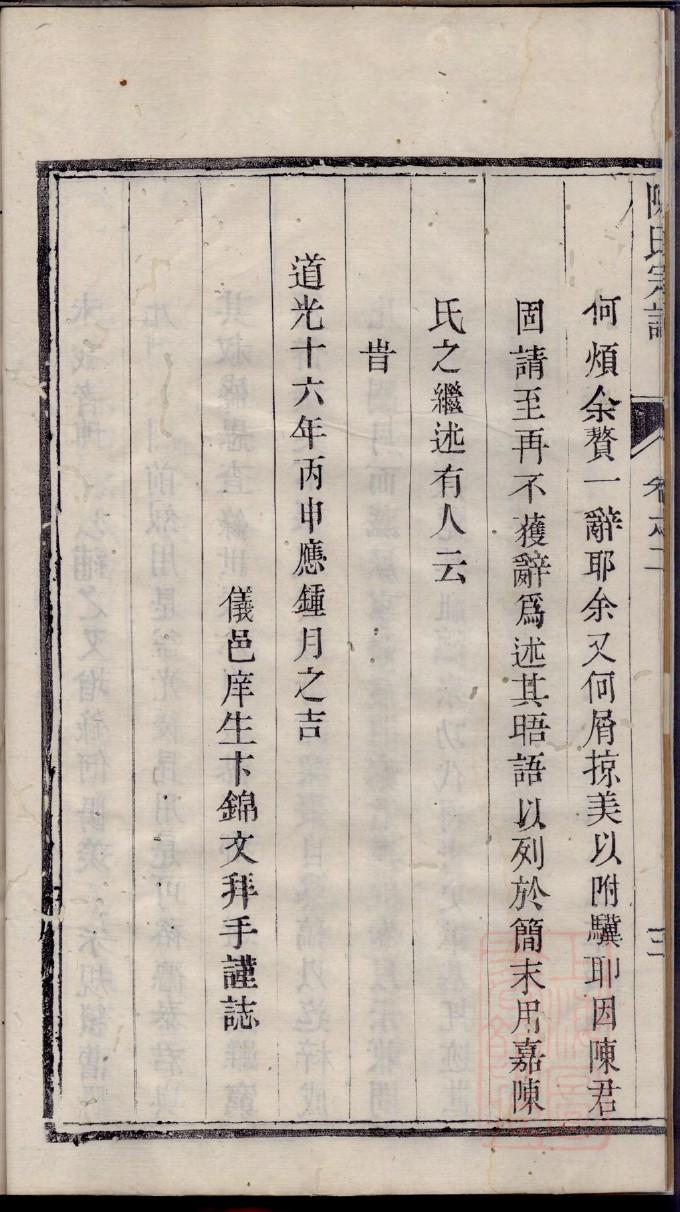 陳氏宗譜 卷之二 三
何煩余贅一辭耶余又何屑掠美以附驥耶因陳君
固請至再不獲辭爲述其晤語以列於簡末用嘉陳
氏之繼述有人云
旹
道光十六年丙申應鍾月之吉
儀邑庠生卞錦文拜手謹誌